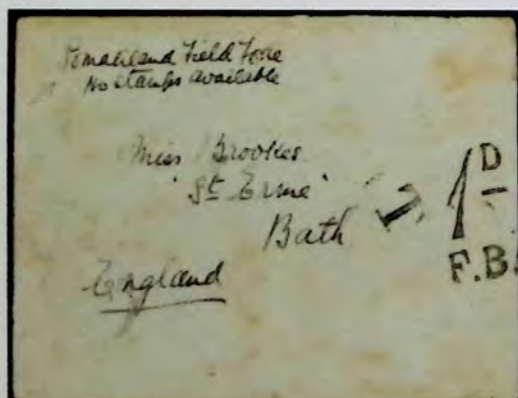 Somaliland Field Force
No stamps available
Miss Brookes
'St Erme'
Bath
England
1D
F.B.